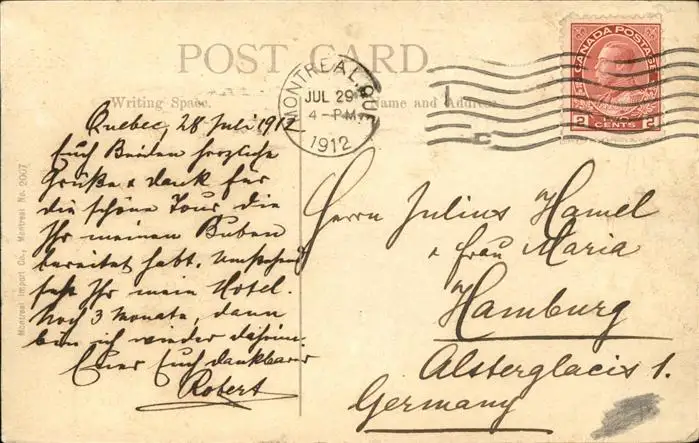 POST CARD
Writing Space.
Name and Address
MONTREAL, QUE
JUL 29
4 - PM
1912
CANADA POSTAGE
2 CENTS 2
Montreal Import Co., Montreal No. 2007
Quebec, 28 Juli 1912
Euch Beiden herzliche
Grüße & dank für
die schöne Tour die
Ihr meinen Buben
bereitet habt. Umstehend
seht Ihr mein Hotel.
Noch 3 Monate, dann
bin ich wieder daheim.
Euer Euch dankbarer
Robert
Herrn Julius Hamel
& Frau Maria
Hamburg
Alsterglacis 1.
Germany